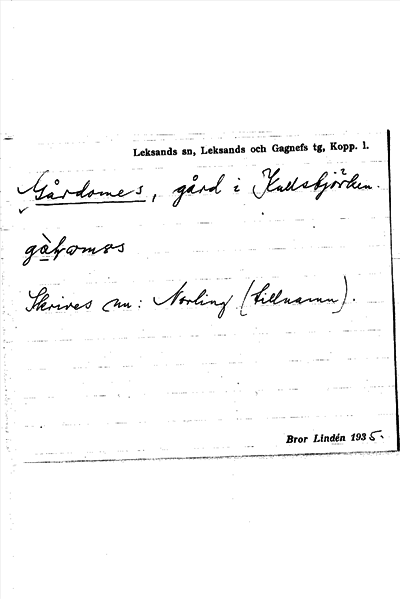 Leksands sn, Leksands och Gagnefs tg, Kopp. l.
Gårdomes, gård i Kullsbjörken.
Skrives nu: Norling (tillnamn).
Bror Lindén 1935.